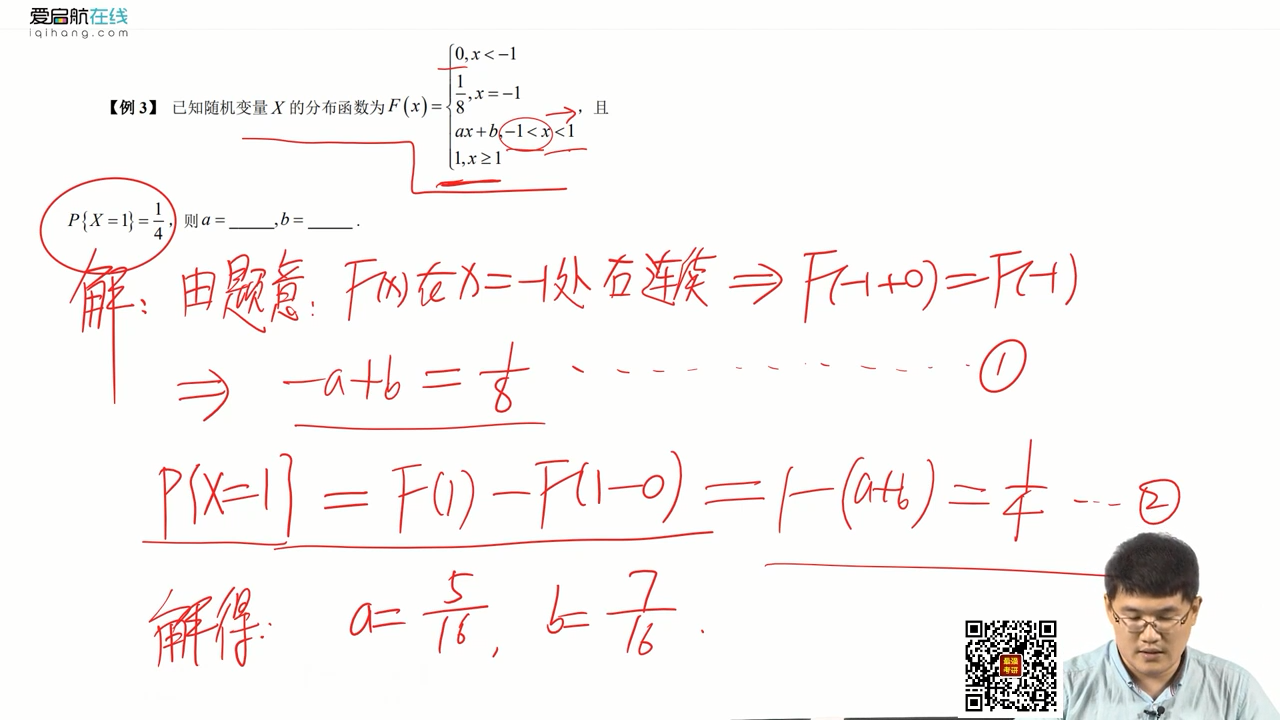 爱启航在线
iqihang.com
0, x < -1
1/8, x = -1
【例 3】 已知随机变量 X 的分布函数为 F(x) = { , 且
ax + b, -1 < x < 1
1, x ≥ 1
P{X = 1} = 1/4, 则 a = _____, b = _____.
解: 由题意: F(x)在X=-1处右连续 ⇒ F(-1+0)=F(-1)
⇒ -a+b = 1/8 ············ ①
P{X=1} = F(1) - F(1-0) = 1-(a+b) = 1/4 ··· ②
解得: a= 5/16, b= 7/16.
最强
考研